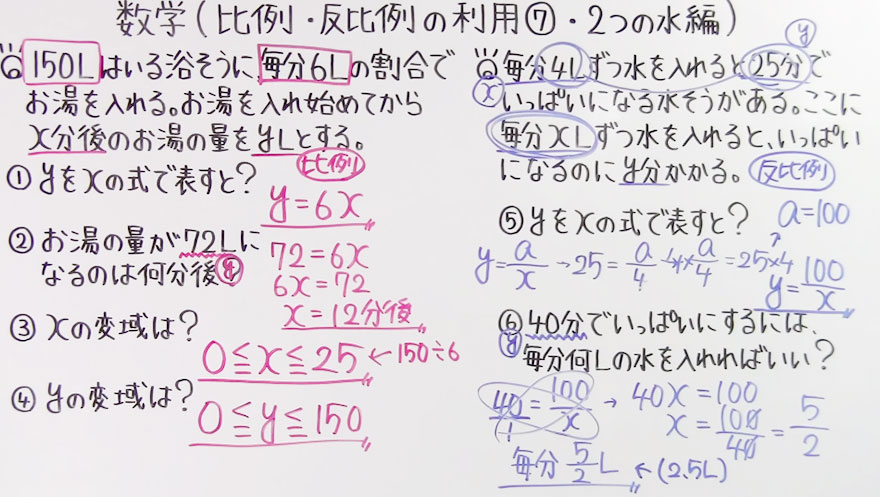 数学(比例・反比例の利用⑦・2つの水編)
Q 150Lはいる浴そうに毎分6Lの割合で
お湯を入れる。お湯を入れ始めてから
x分後のお湯の量をyLとする。
比例
① yをxの式で表すと?
y=6x
② お湯の量が72Lに
なるのは何分後?
y
72=6x
6x=72
x=12分後
③ xの変域は?
0≦x≦25 ←150÷6
④ yの変域は?
0≦y≦150
y
Q 毎分4Lずつ水を入れると25分で
x
いっぱいになる水そうがある。ここに
毎分xLずつ水を入れると、いっぱい
になるのにy分かかる。
反比例
⑤ yをxの式で表すと?
a=100
y=a/x →25=a/4 4×a/4=25×4
y=100/x
⑥ 40分でいっぱいにするには、
y
毎分何Lの水を入れればいい?
40/1=100/x → 40x=100
x=100/40=5/2
毎分5/2L ←(2.5L)